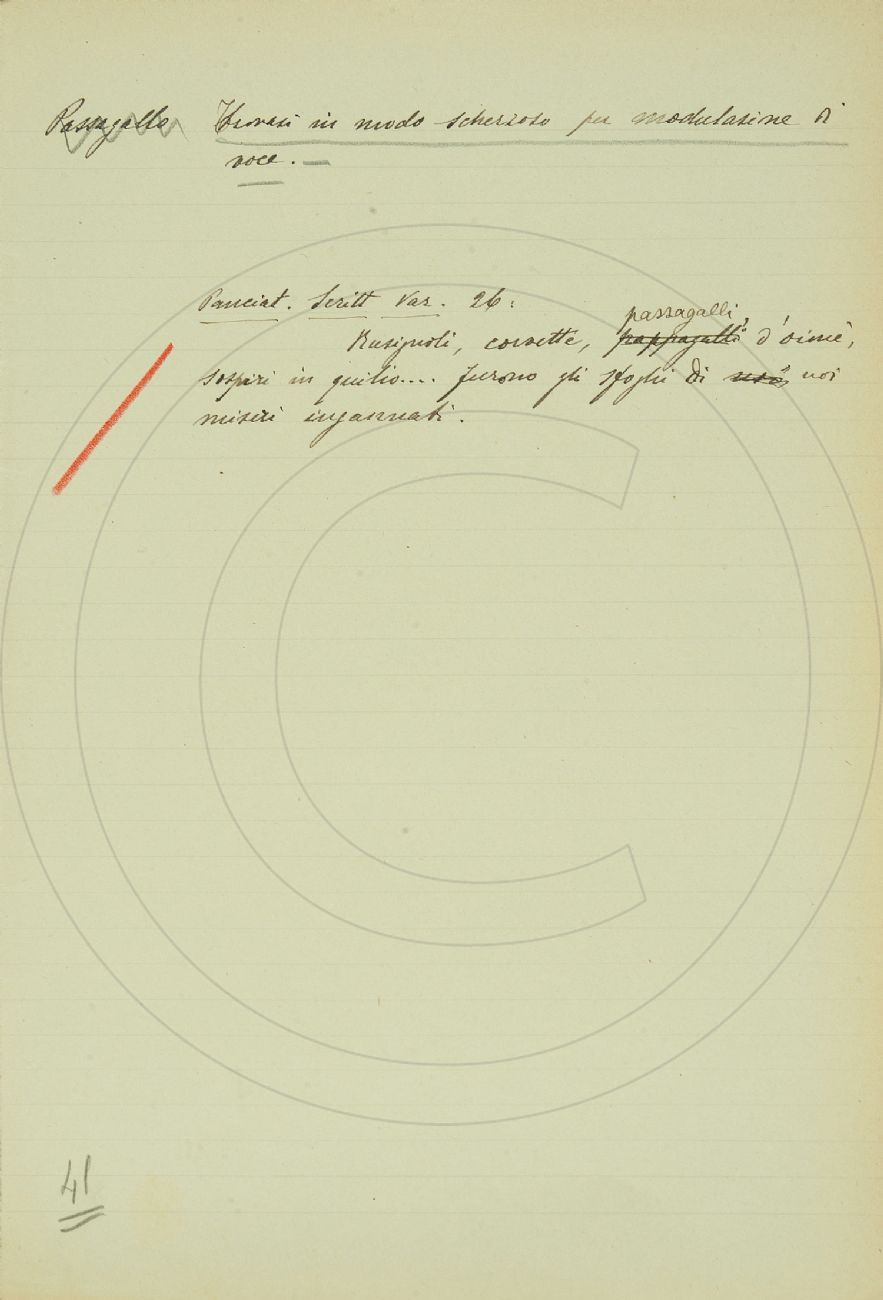 Passagallo Trovasi in modo scherzoso per modulazine di
voce. —
Panciat. Scritt Var. 26:
passagalli,
Rusignoli, corvette, pappagalli d'oimè,
sospiri in quilio.... furono gli sfoghi di noi
miseri ingannati.
41